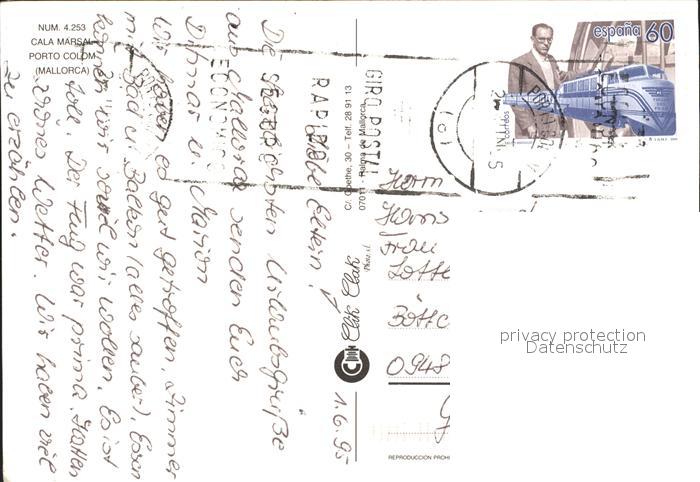 NUM. 4.253
CALA MARSAL
PORTO COLOM
(MALLORCA)
1.6.95
Liebe Eltern!
Die allerschönsten Urlaubsgrüße
aus Mallorca senden Euch
Detmar u. Marion
Wir haben es gut getroffen, Zimmer
mit Bad u. Balkon (alles sauber), Essen
können wir soviel wir wollen. Es ist
toll. Der Flug war prima, hatten
schönes Wetter. Wir haben viel
zu erzählen.
GIRO POSTAL
RAPIDO
SEGURO
ECONOMICO
C/. Goethe, 30 – Telf. 28 91 13
07011 - Palma de Mallorca
Clik Clak
Photo, s.l.
españa 60
correos
Herrn
Hans
Frau
Lotte
Böttc
0948
REPRODUCCION PROHI
privacy protection
Datenschutz